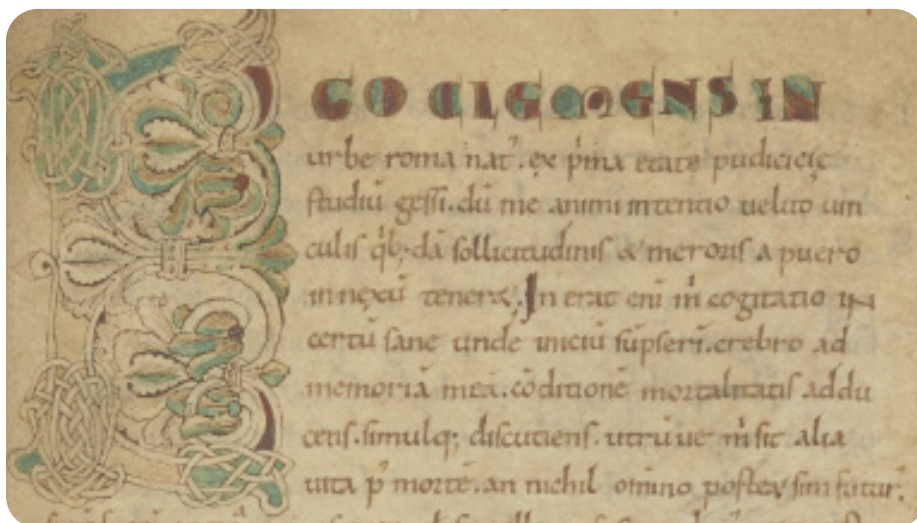 EGO CLEMENS IN
urbe roma nat᾽. ex p̄ma etate pudicicię
studiū gessi. dū me animi intentio uelut᾽ uin
culis q̇b; dā sollicitudinis & meroris a puero
innexū teneret᾽. In erat eni m̄ cogitatio in
certū sane unde iniciū sūpseri. crebro ad
memoriā meā. cōditionē mortalitatis addu
cens. simulq; discutiens. utrū ue m̄ sit alia
uita p̄ morte. an nichil omino postea sim futur᾽.